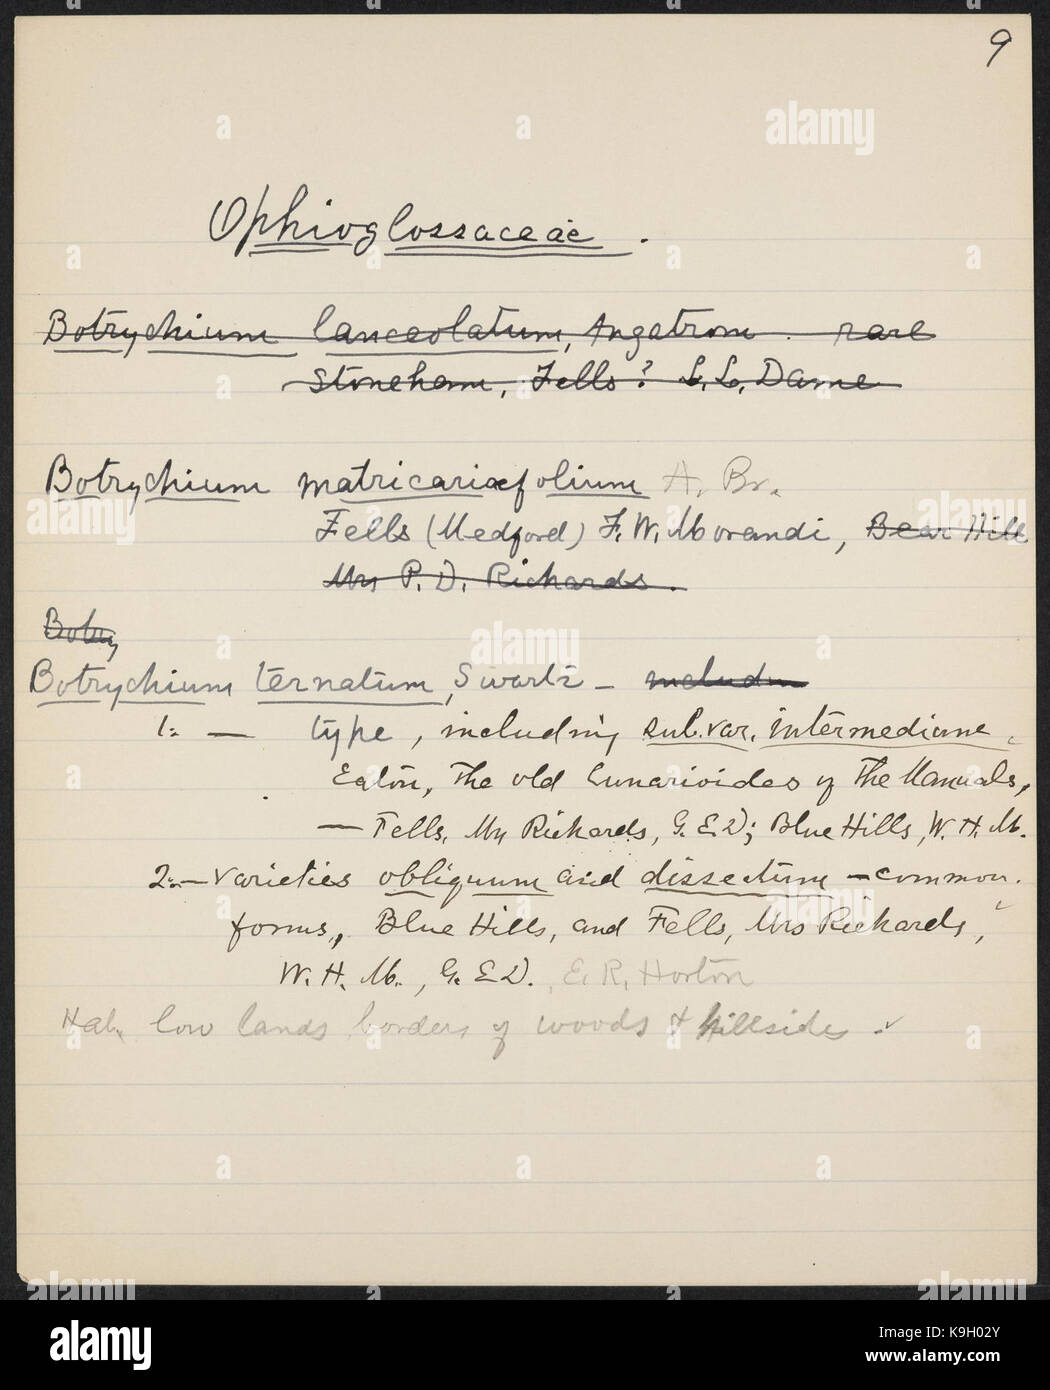 9
Ophioglossaceae.
Botrychium lanceolatum, Angstrom. rare
Stoneham, Fells? L. L. Dame
Botrychium matricariæfolium A. Br.
Fells (Medford) F. W. Morandi, Bear Hill
Mrs P. D. Richards.
Botry
Botrychium ternatum, Swartz - includin
1:- type, including sub.var. intermedium,
Eaton, the old lunarioides of the Manuals,
- Fells, Mrs Richards, G. E. D; Blue Hills, W. H. M.
2:- varieties obliquum and dissectum - common
forms, Blue Hills, and Fells, Mrs Richards,
W. H. M., G. E. D., E. R. Horton
Hab. low lands borders of woods & hillsides -
alamy
Image ID: K9H02Y
www.alamy.com